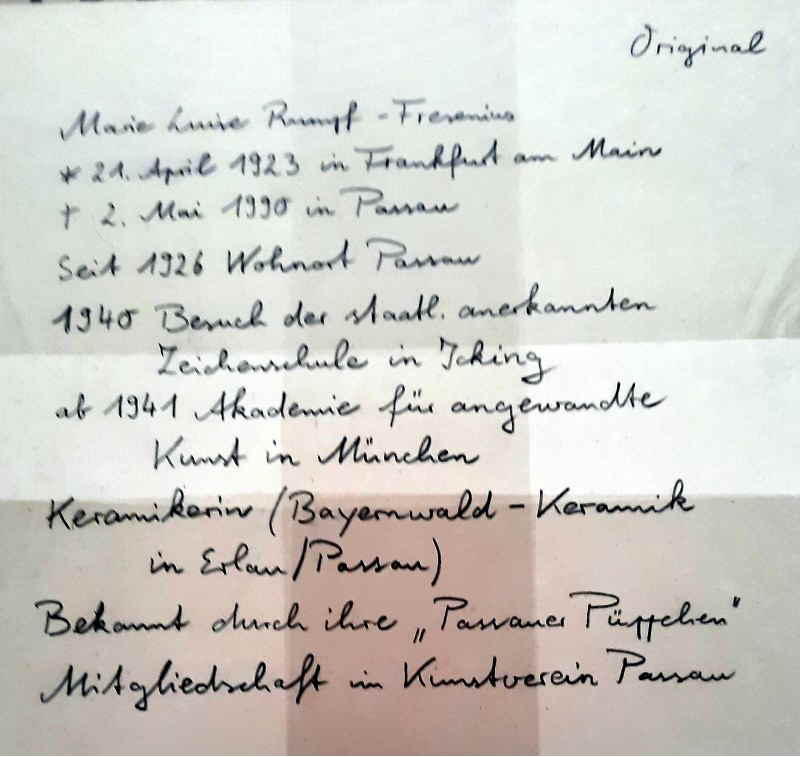 Original
Marie Luise Rumpf - Fresenius
* 21. April 1923 in Frankfurt am Main
† 2. Mai 1990 in Passau
Seit 1926 Wohnort Passau
1940 Besuch der staatl. anerkannten
Zeichenschule in Icking
ab 1941 Akademie für angewandte
Kunst in München
Keramikerin (Bayernwald - Keramik
in Erlau/Passau)
Bekannt durch ihre „Passauer Püppchen"
Mitgliedschaft im Kunstverein Passau